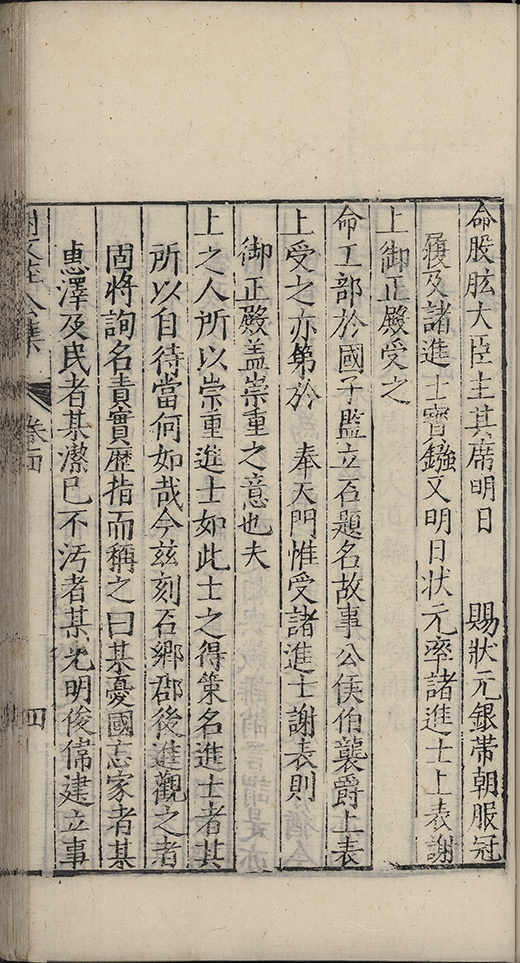 命股肱大臣主其席明日　賜狀元銀帶朝服冠
履及諸進士寶鏹又明日狀元率諸進士上表謝
上御正殿受之
命工部於國子監立石題名故事公侯伯襲爵上表
上受之亦第於　奉天門惟受諸進士謝表則
御正殿蓋崇重之意也夫
上之人所以崇重進士如此士之得策名進士者其
所以自待當何如哉今兹刻石鄉郡後進觀之者
固將詢名責實歷指而稱之曰某憂國忘家者某
惠澤及民者某潔巳不汚者某光明俊偉建立事
公集
卷四
四